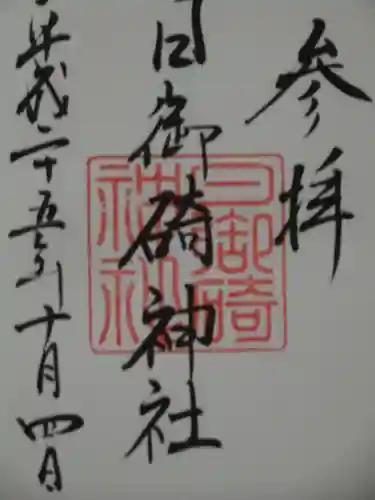 参拝
日御碕神社
平成二十五年十月四日
日御碕
神社